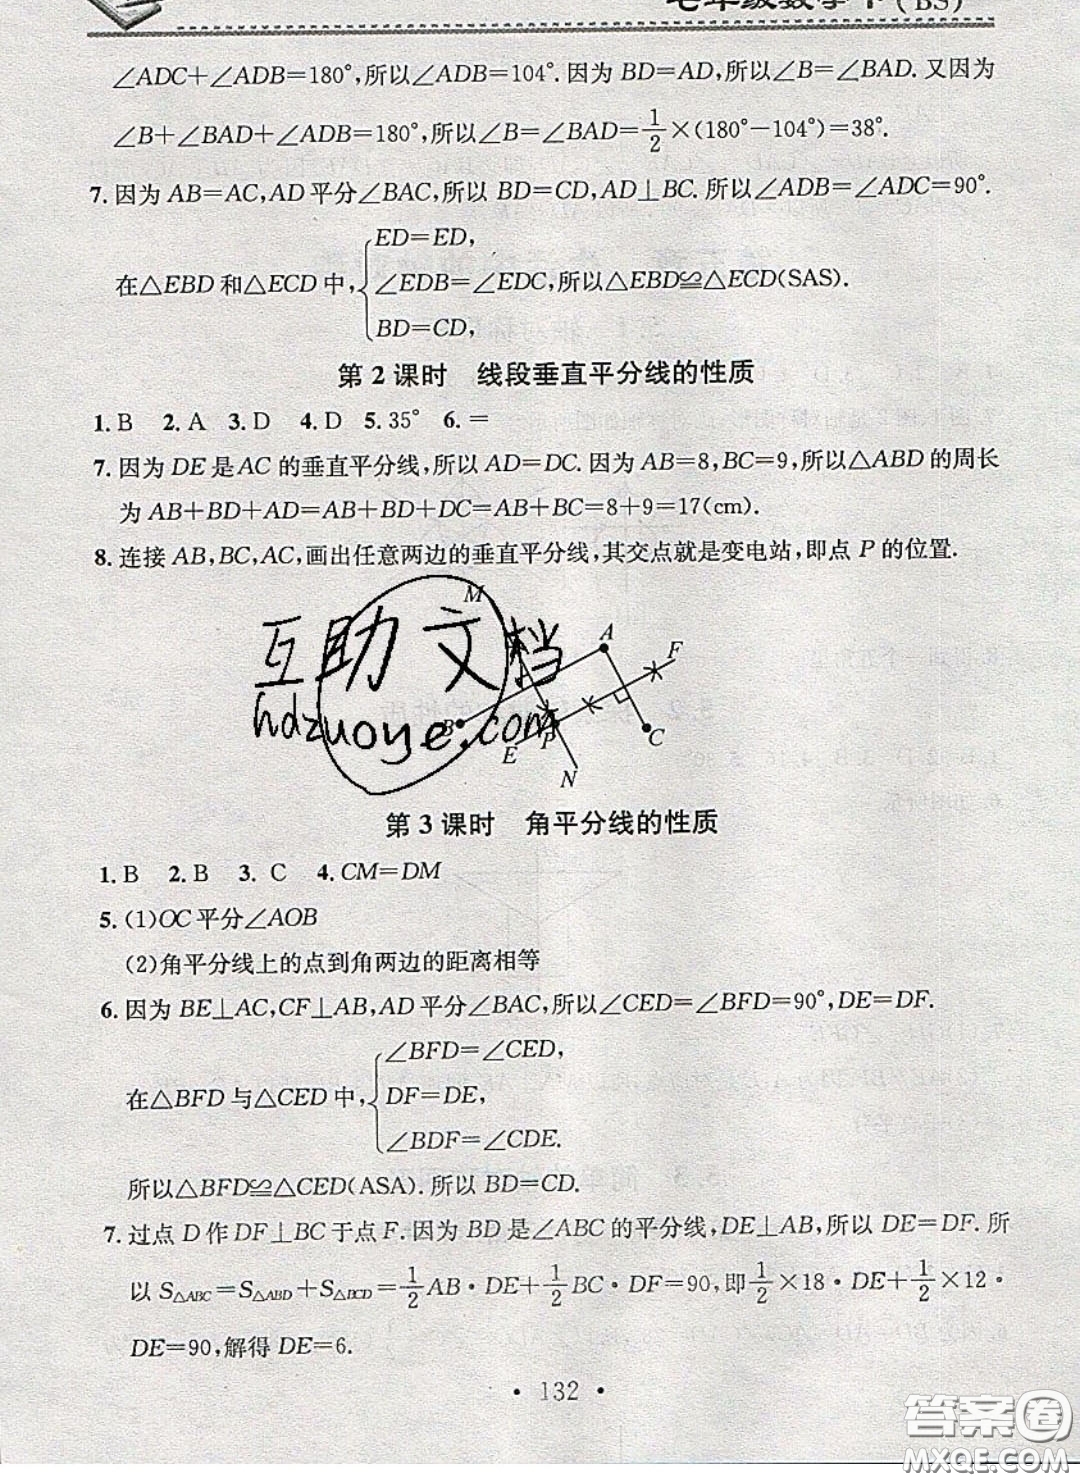 七年级数学下(BS)
∠ADC+∠ADB=180°,所以∠ADB=104°.因为BD=AD,所以∠B=∠BAD.又因为
∠B+∠BAD+∠ADB=180°,所以∠B=∠BAD=1/2×(180°-104°)=38°.
7.因为AB=AC,AD平分∠BAC,所以BD=CD,AD⊥BC.所以∠ADB=∠ADC=90°.
ED=ED,
在△EBD和△ECD中,{∠EDB=∠EDC,所以△EBD≌△ECD(SAS).
BD=CD,
第2课时 线段垂直平分线的性质
1.B 2.A 3.D 4.D 5.35° 6.=
7.因为DE是AC的垂直平分线,所以AD=DC.因为AB=8,BC=9,所以△ABD的周长
为AB+BD+AD=AB+BD+DC=AB+BC=8+9=17(cm).
8.连接AB,BC,AC,画出任意两边的垂直平分线,其交点就是变电站,即点P的位置.
M
A
F
互助文档
hdzuoye.com
B
E
P
C
N
第3课时 角平分线的性质
1.B 2.B 3.C 4.CM=DM
5.(1)OC平分∠AOB
(2)角平分线上的点到角两边的距离相等
6.因为BE⊥AC,CF⊥AB,AD平分∠BAC,所以∠CED=∠BFD=90°,DE=DF.
∠BFD=∠CED,
在△BFD与△CED中,{DF=DE,
∠BDF=∠CDE.
所以△BFD≌△CED(ASA).所以BD=CD.
7.过点D作DF⊥BC于点F.因为BD是∠ABC的平分线,DE⊥AB,所以DE=DF.所
以S△ABC=S△ABD+S△BCD=1/2AB·DE+1/2BC·DF=90,即1/2×18·DE+1/2×12·
DE=90,解得DE=6.
·132·
答案圈
MXQE.COM